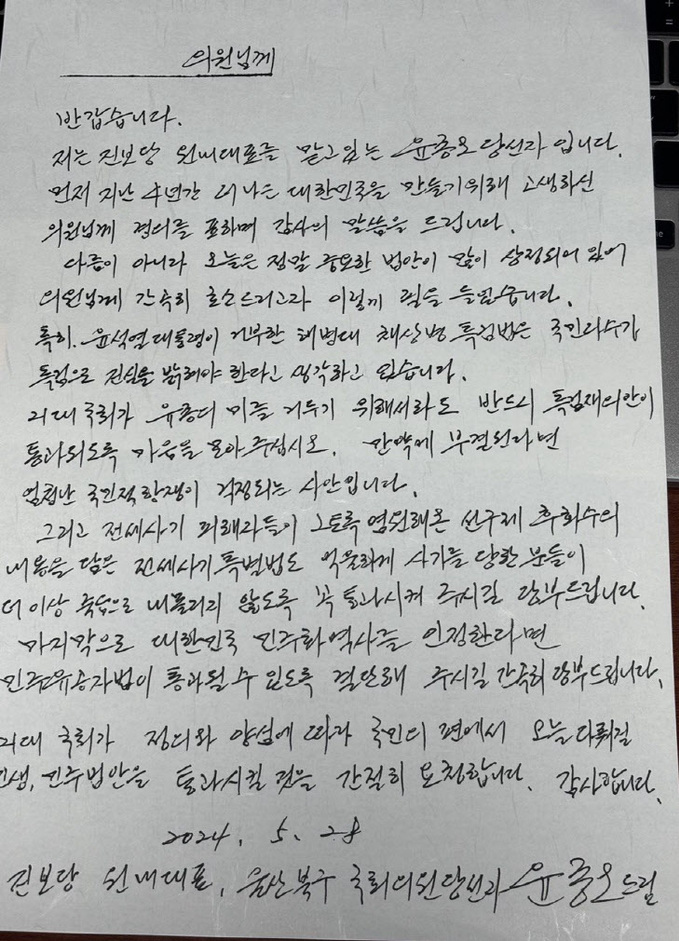 의원님께
반갑습니다.
저는 진보당 원내대표를 맡고있는 윤종오 당선자 입니다.
먼저 지난 4년간 더 나은 대한민국을 만들기위해 고생하신
의원님께 경의를 표하며 감사의 말씀을 드립니다.
다름이 아니라 오늘은 정말 중요한 법안이 많이 상정되어 있어
의원님께 간곡히 호소드리고자 이렇게 펜을 들었습니다.
특히, 윤석열대통령이 거부한 해병대 채상병 특검법은 국민다수가
특검으로 진실을 밝혀야 한다고 생각하고 있습니다.
21대 국회가 유종의 미를 거두기 위해서라도 반드시 특검재의안이
통과되도록 마음을 모아주십시오. 만약에 부결된다면
엄청난 국민적항쟁이 걱정되는 사안입니다.
그리고 전세사기 피해자들이 그토록 염원해온 선구제 후회수의
내용을 담은 전세사기특별법도 억울하게 사기를 당한 분들이
더 이상 죽음으로 내몰리지 않도록 꼭 통과시켜 주시길 당부드립니다.
마지막으로 대한민국 민주화역사를 인정한다면
민주유공자법이 통과될 수 있도록 결단해 주시길 간곡히 당부드립니다.
21대 국회가 정의와 양심에 따라 국민의 편에서 오늘 다뤄질
민생, 민주법안을 통과시킬 것을 간절히 요청합니다. 감사합니다.
2024. 5. 28
진보당 원내대표, 울산북구 국회의원당선자 윤종오드림